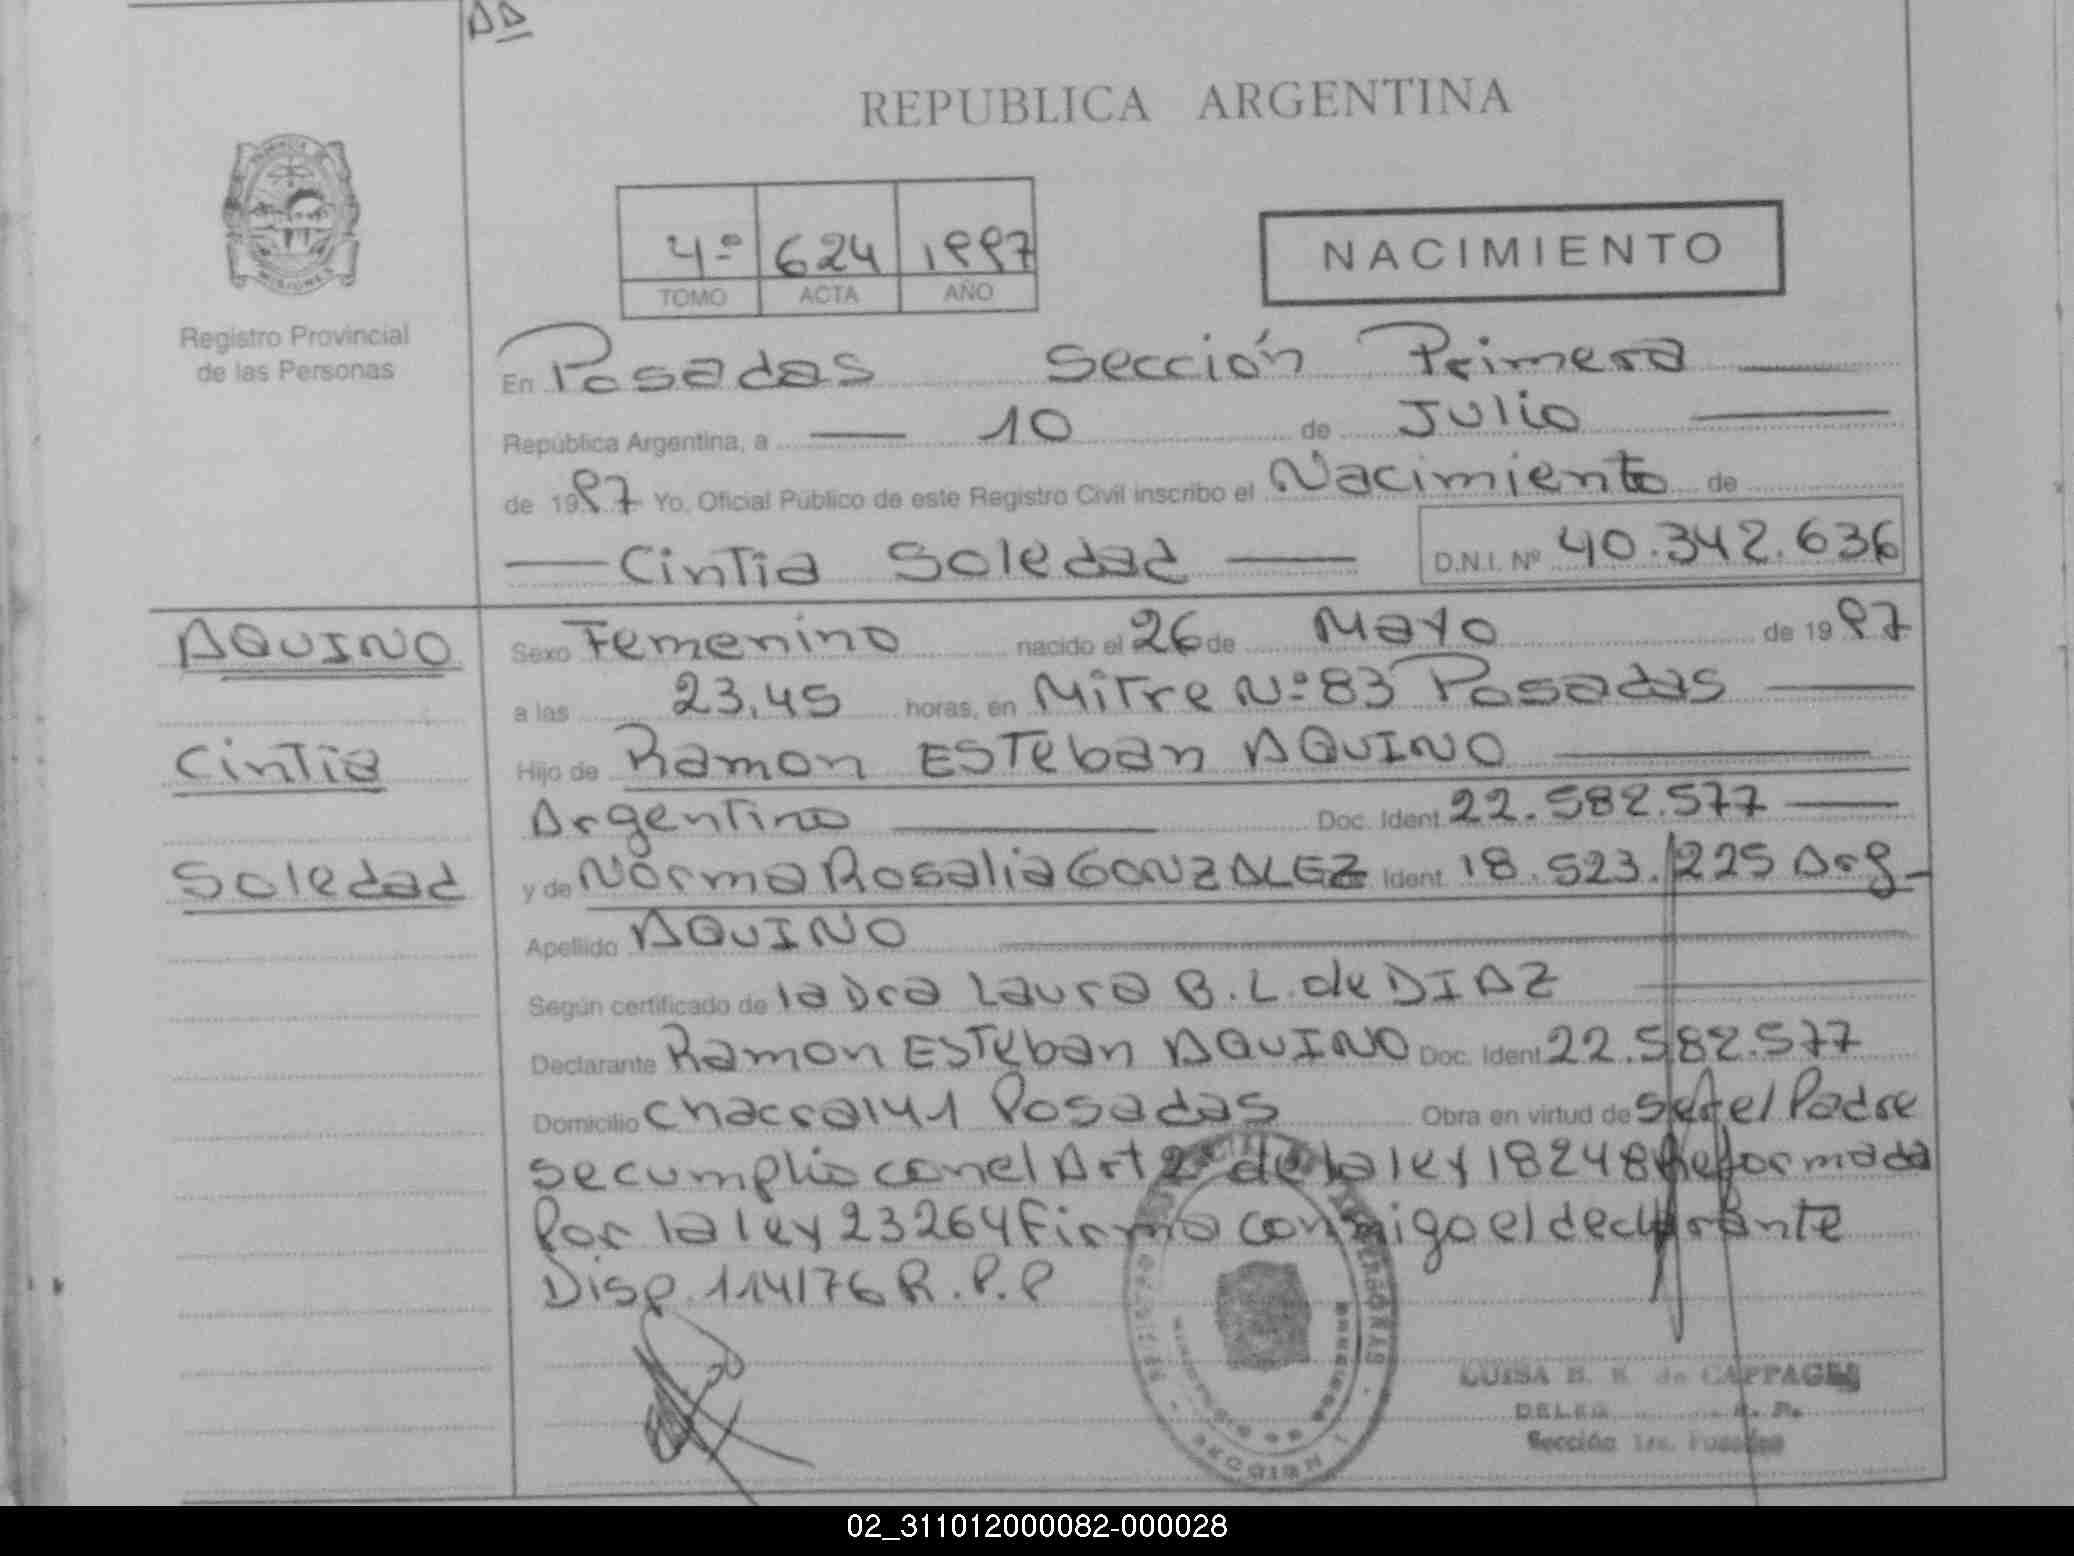 DD
REPUBLICA ARGENTINA
4º 624 1997
TOMO ACTA AÑO
NACIMIENTO
MISIONES
Registro Provincial
de las Personas
En Posadas Sección Primera
República Argentina, a 10 de Julio
de 1997 Yo, Oficial Público de este Registro Civil inscribo el Nacimiento de
Cintia Soledad D.N.I. Nº 40.342.636
AQUINO
Cintia
Soledad
Sexo Femenino nacido el 26 de Mayo de 1997
a las 23,45 horas, en Mitre Nº 83 Posadas
Hijo de Ramon ESTeban AQUINO
Argentino Doc. Ident. 22.582.577
y de Norma Rosalia GONZALEZ Ident. 18.523.225 Arg
Apellido AQUINO
Según certificado de la Dra Laura B.L. de DIAZ
Declarante Ramon ESTeban AQUINO Doc. Ident. 22.582.577
Domicilio chacra 141 Posadas Obra en virtud de ser el Padre
se cumplio con el Art 2º de la ley 18248 Reformada
Por la ley 23264 firma conmigo el declarante
Disp. 114/76 R.P.P
LUISA B. K. de CAPPAGES
Sección 1ra. Posadas
02_311012000082-000028